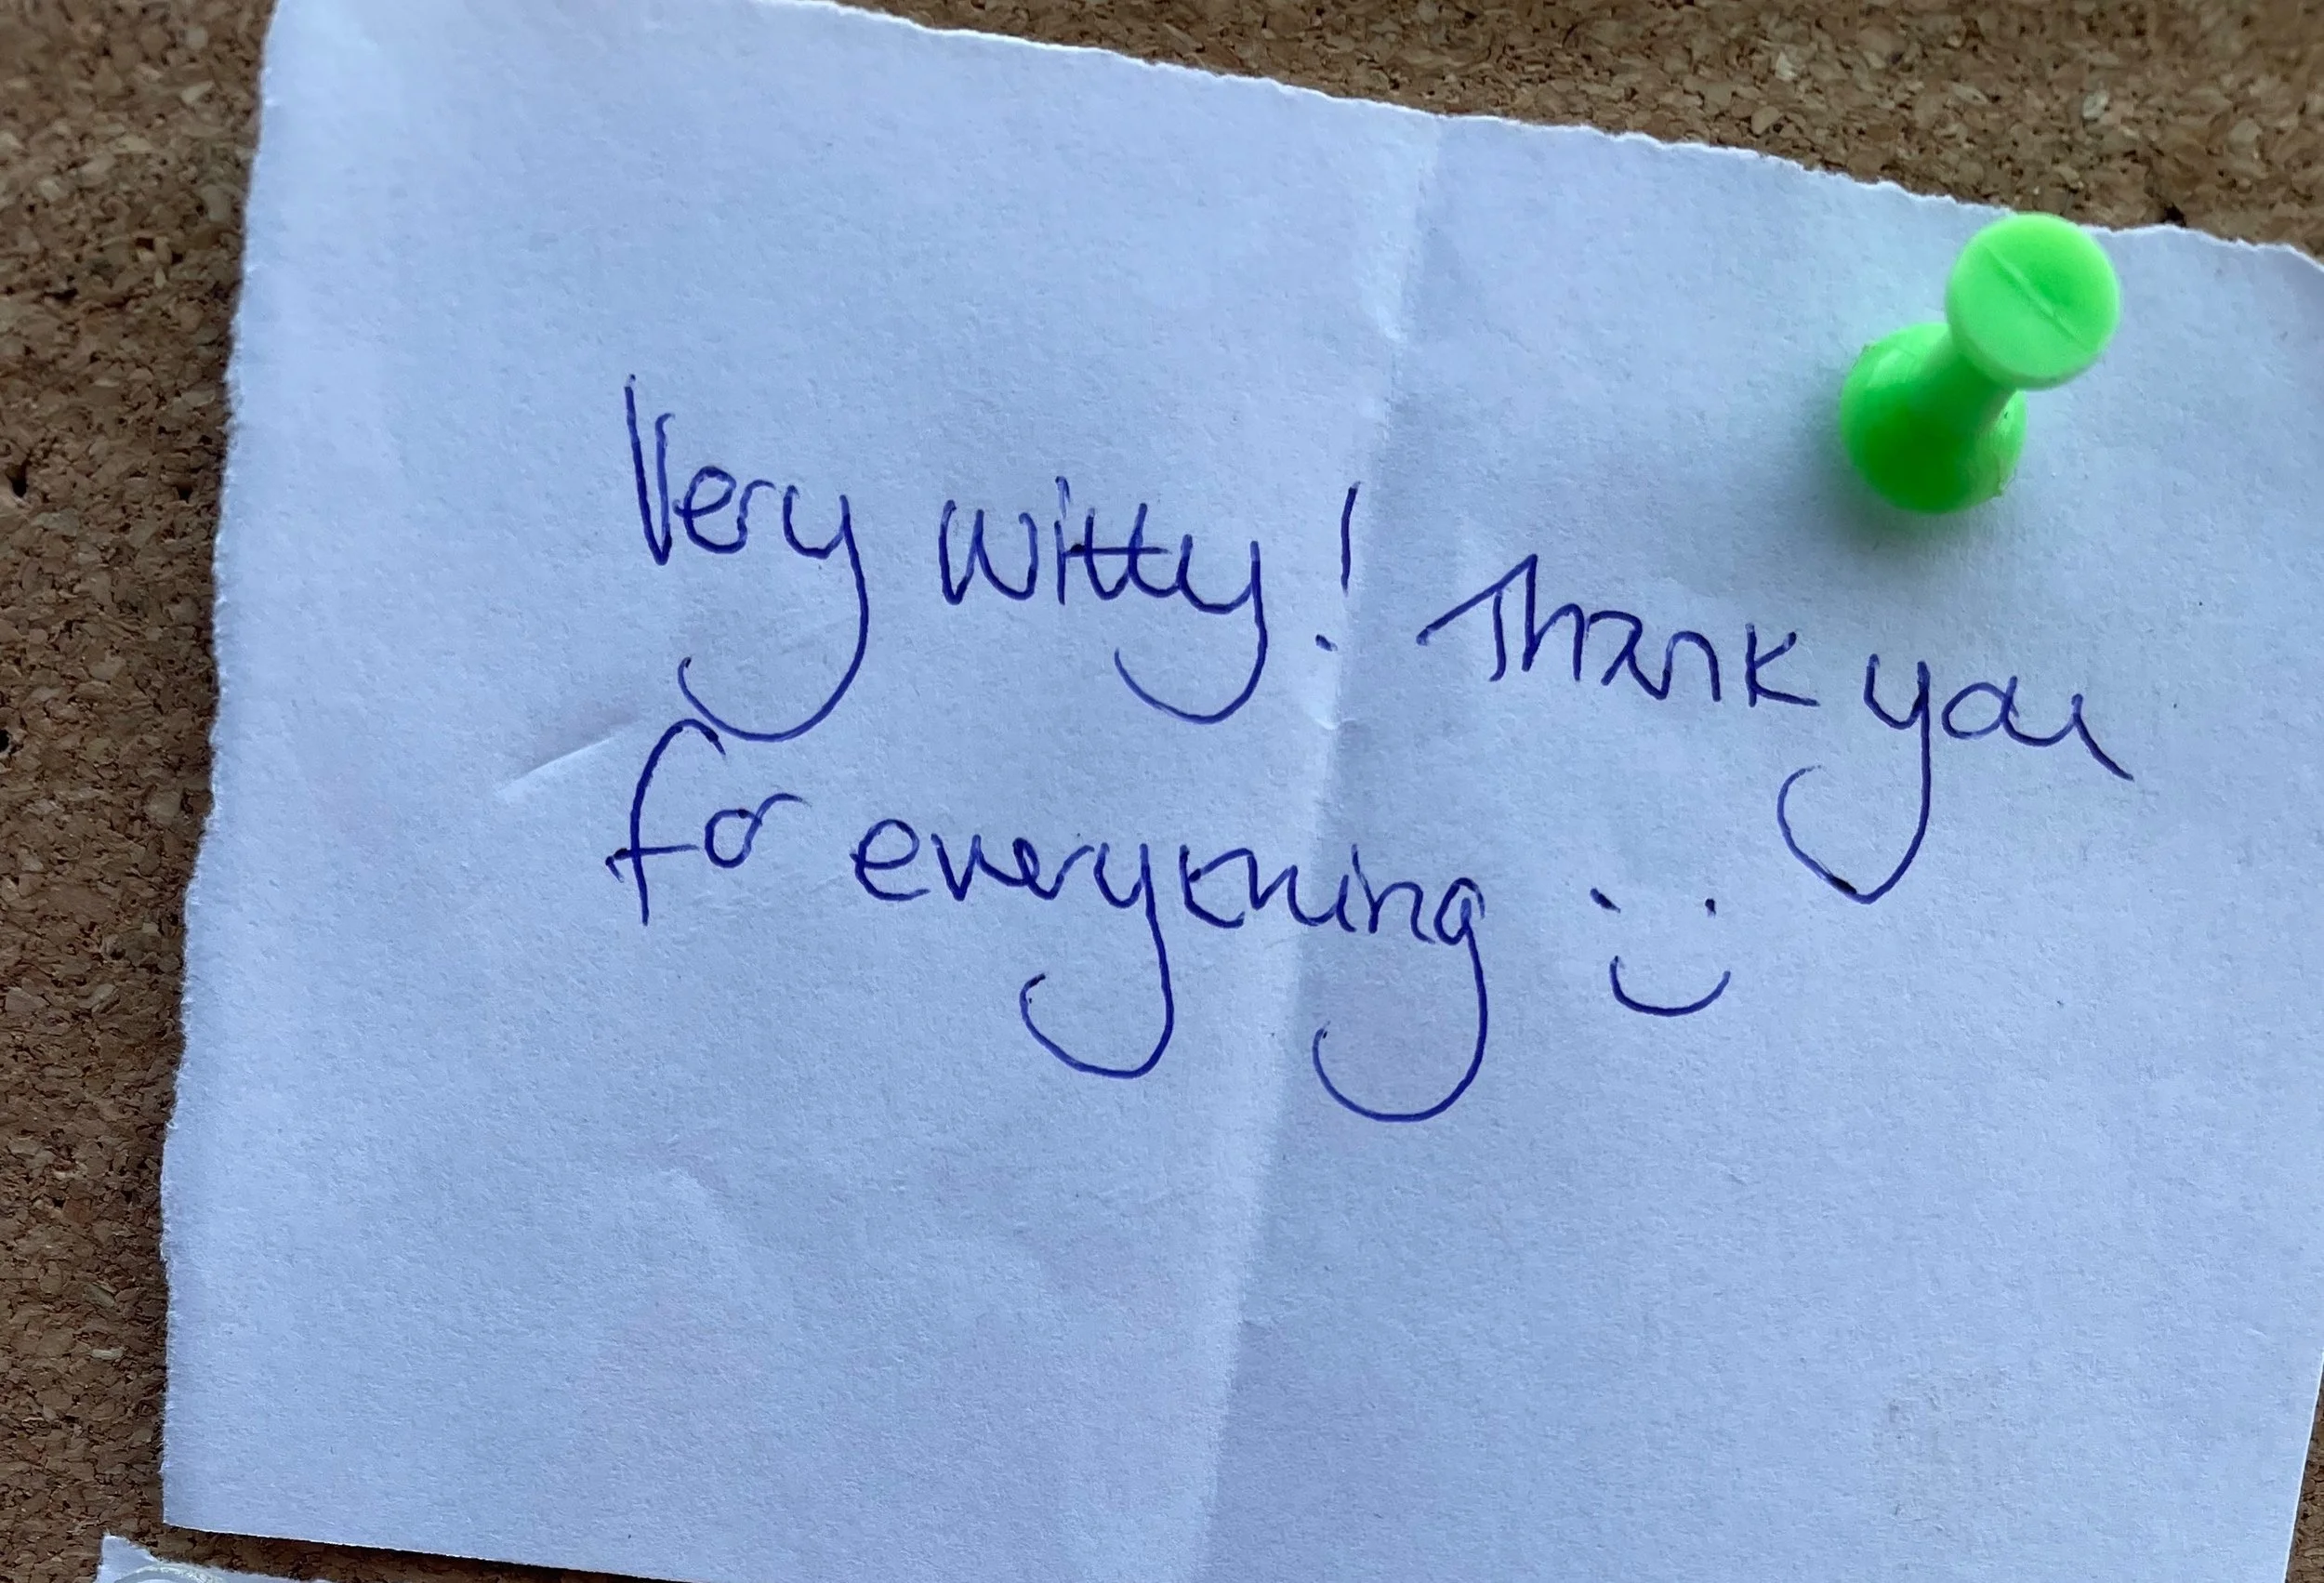 Very witty! Thank you
for everything :)